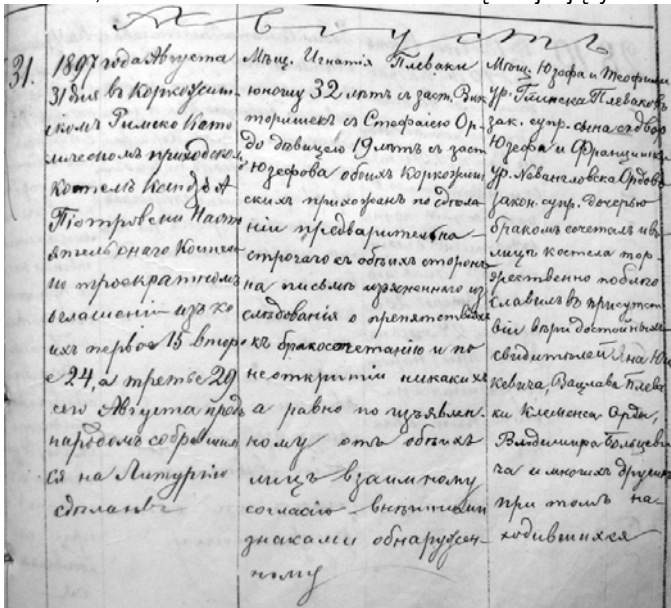 А в г у с т ъ
31.
1897 года Августа
31 дня въ Коркожит
скомъ Римско Като
лическомъ приходском
костелѣ Ксендзъ А
Піотровскій Насто
ятель онаго Костела
по троекратномъ
оглашеніи изъ ко
ихъ первое 15 второ
е 24, а третье 29
сего Августа предъ
народомъ собравшим
ся на Литургію
сдѣланы
Мѣщ. Игнатія Плеваки
юношу 32 лѣтъ съ заст. Вик
торишекъ съ Стефаніею Ор-
до дѣвицею 19 лѣтъ съ заст
Юзефова обоихъ Коркожит
скихъ прихожанъ по сдѣла
ніи предварительна
строгаго съ обѣихъ сторонъ
на письмѣ изъясненнаго из
слѣдованія о препятствіяхъ
къ бракосочетанію и по
неоткрытіи никакихъ
а равно по изъявлен-
ному отъ обѣихъ
лицъ взаимному
согласію внѣшними
знаками обнаружен-
ному
Мѣщ. Юзефа и Теофили
ур. Глинска Плеваковъ
зак. супр. сына съ двор
Юзефа и Францишки
ур. Ордовъ
закон. супр. дочерью
бракомъ сочеталъ и въ
лицѣ костела тор-
жественно поблаго
славилъ въ присутст
віи вѣры достойныхъ
свидѣтелей Яна Юш
кевича, Вацлава Плева
ки Клеменса Орды,
Владимира Больцеви
ча и многихъ другихъ
при томъ на-
ходившихся